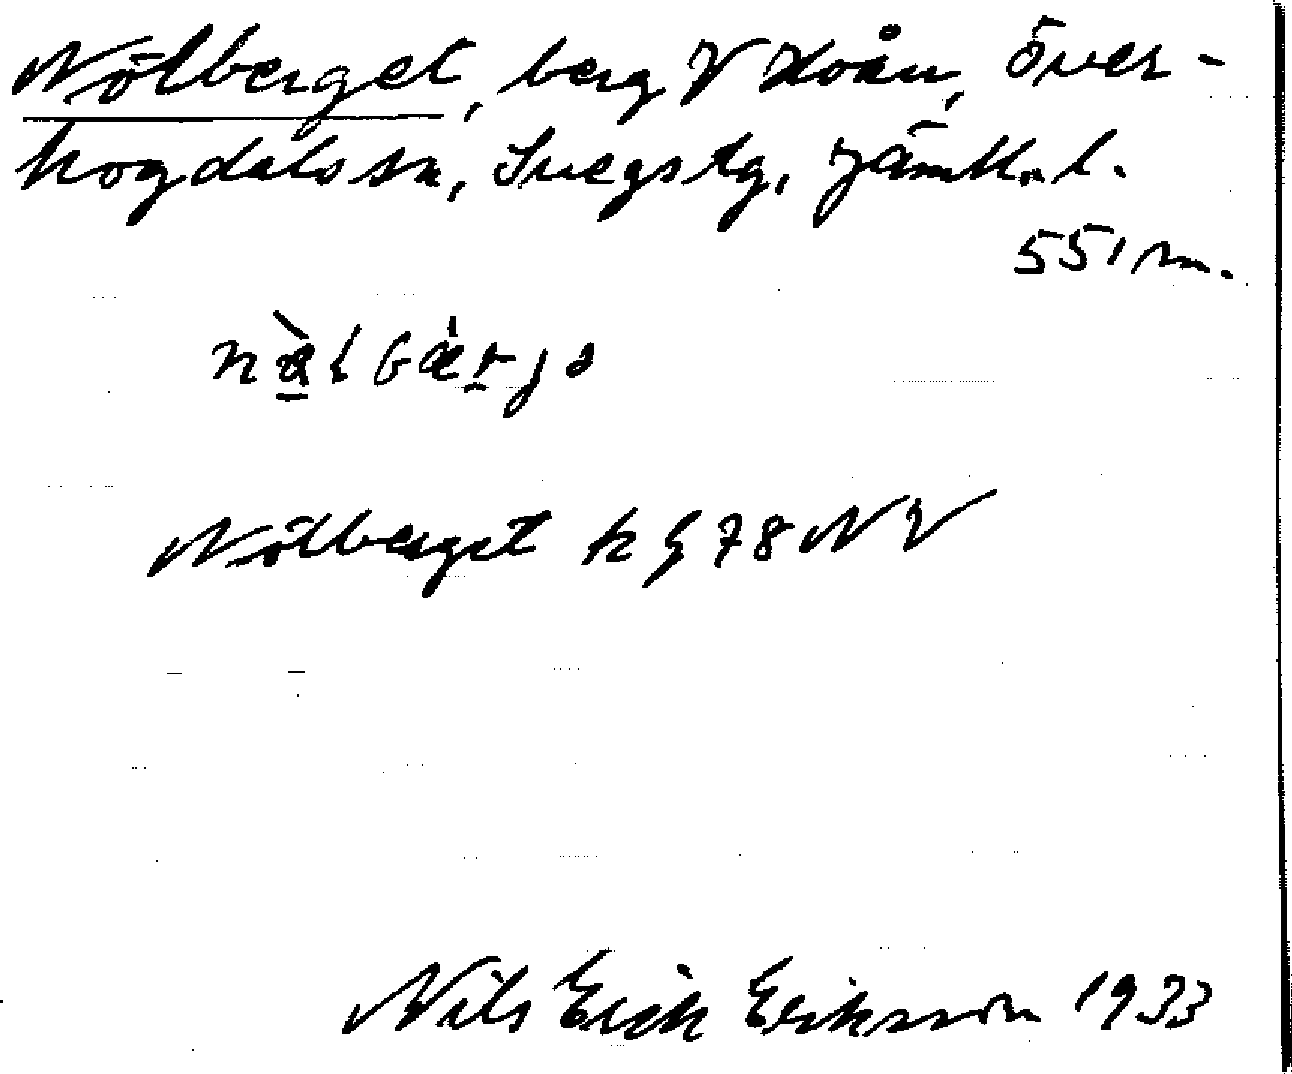 Nölberget, berg V Xoån, Över-
hogdals sn, Svegs tg, Jämtl. l.
551 m.
Nölberget k § 78 NV
Nils Erik Eriksson 1933